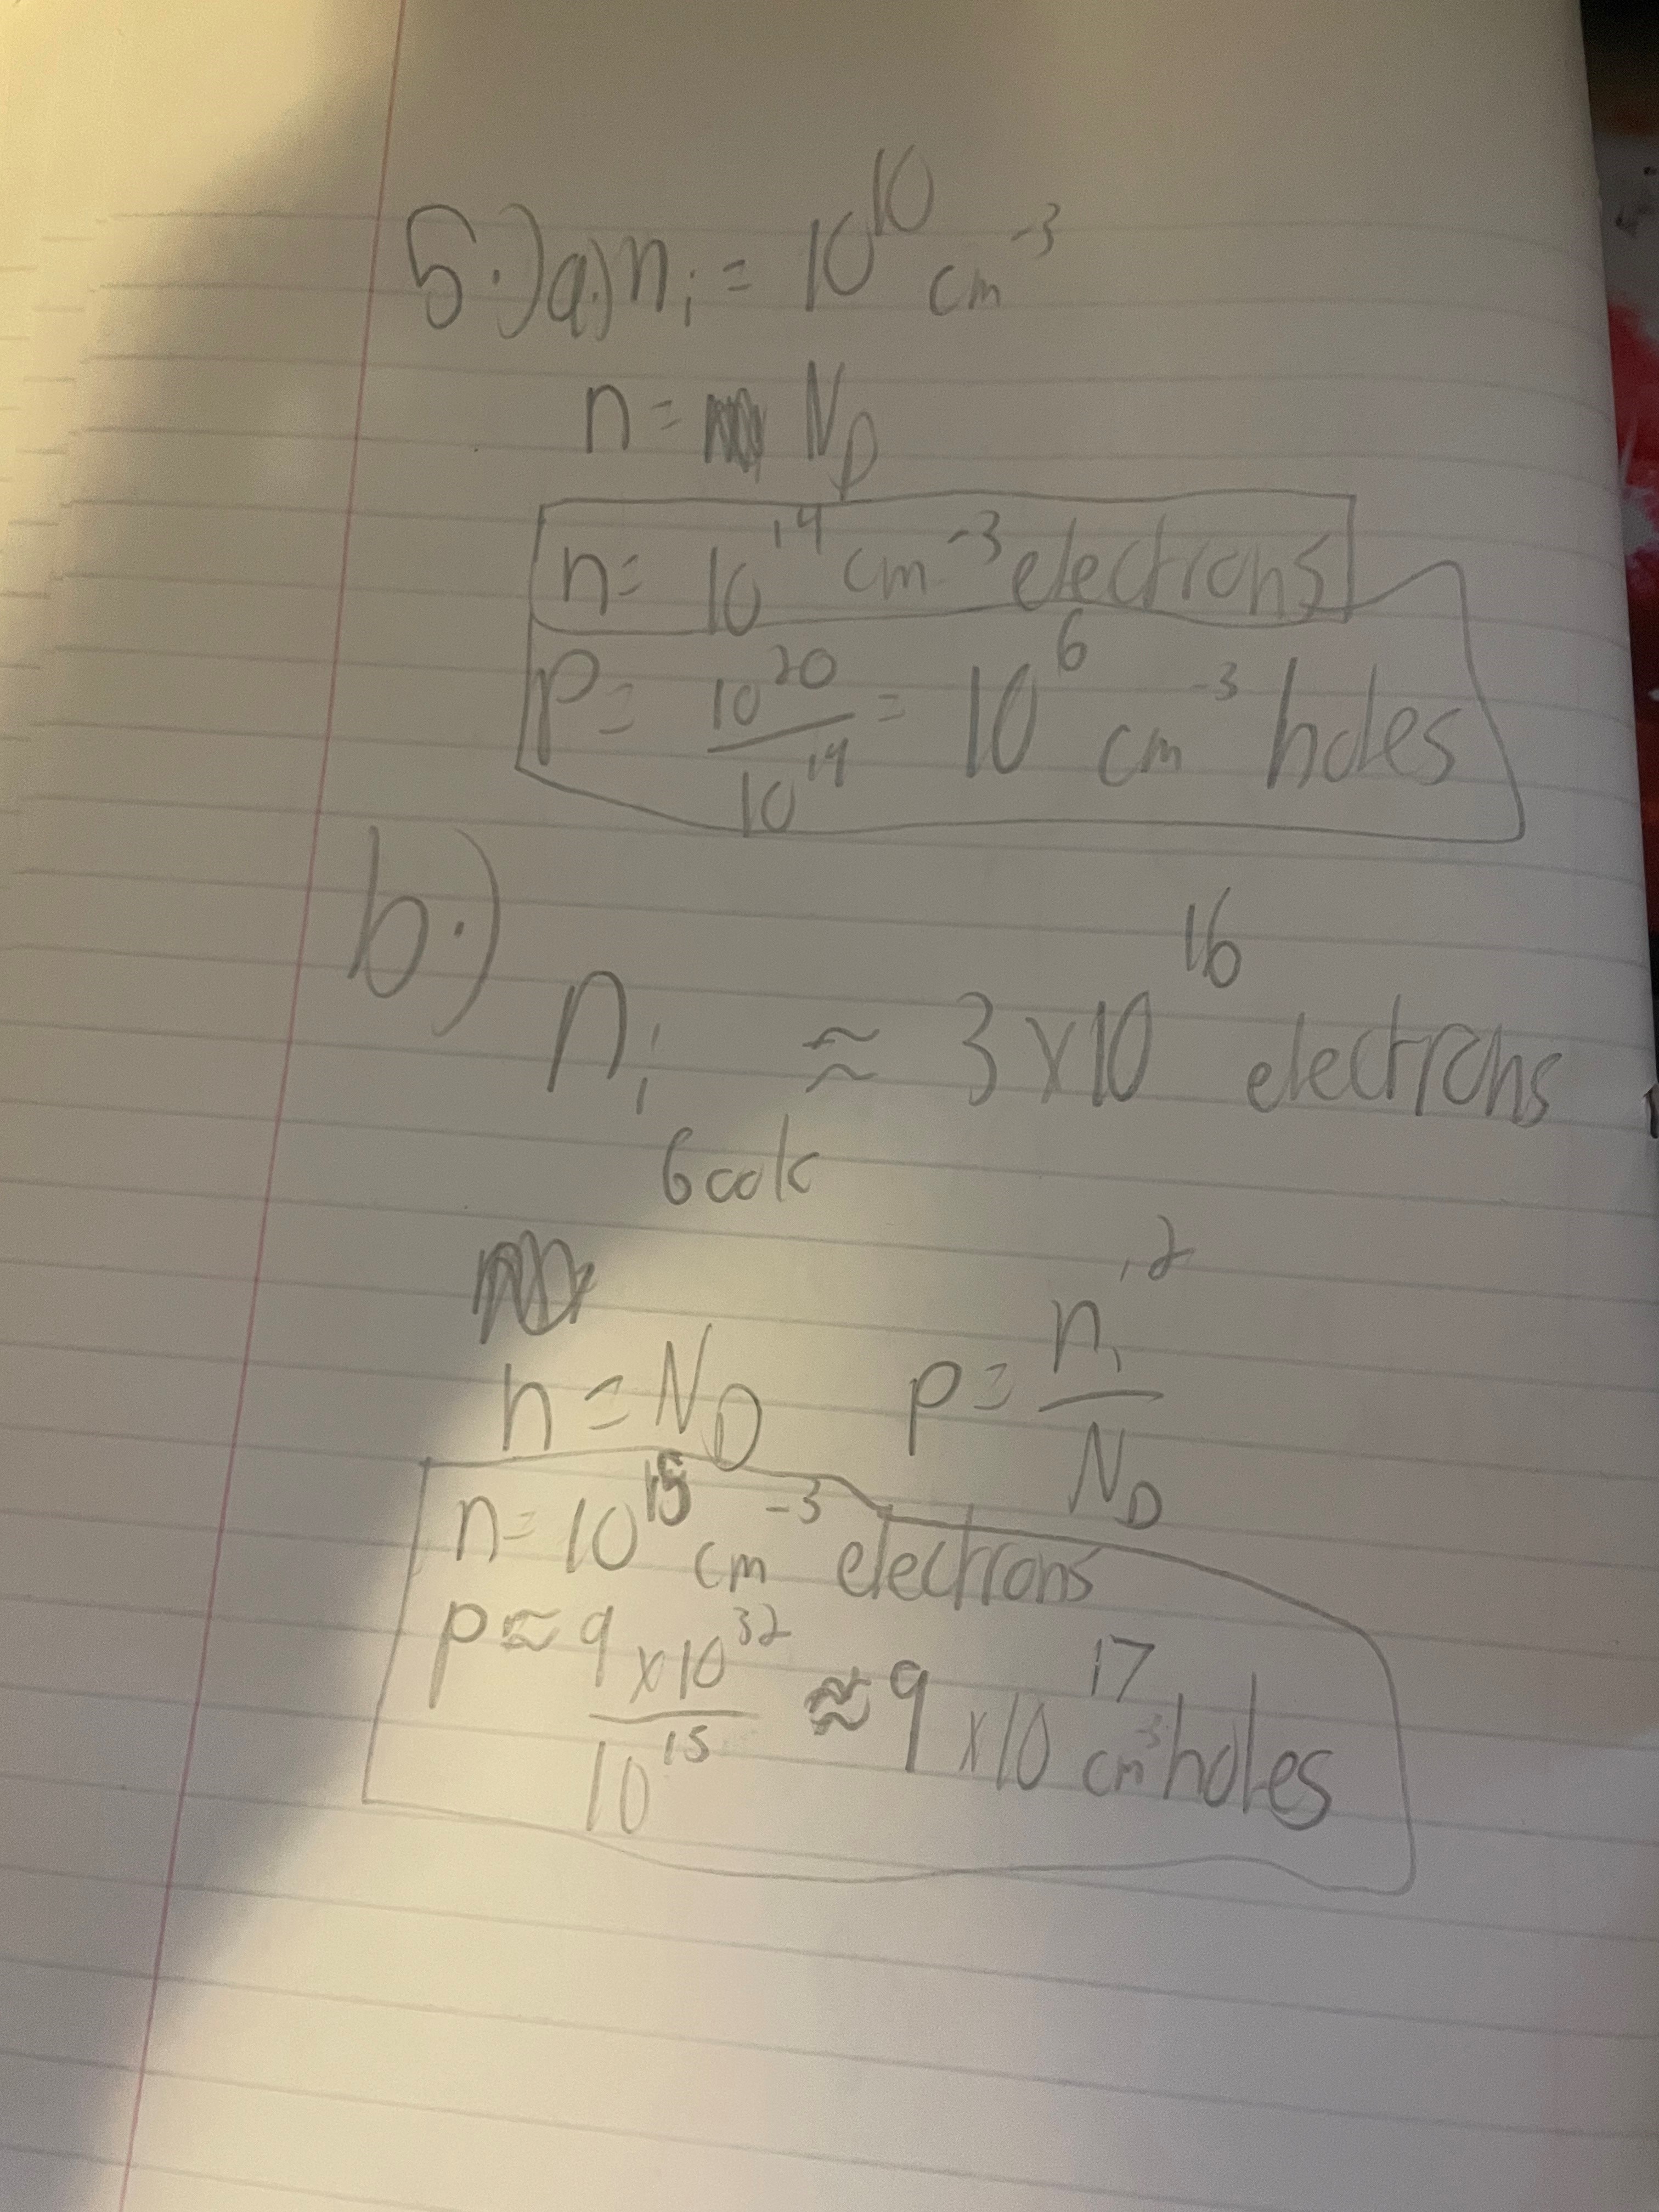 5.) a.) nᵢ = 10¹⁰ cm⁻³
n = N_D
n = 10¹⁴ cm⁻³ electrons
p = 10²⁰/10¹⁴ = 10⁶ cm⁻³ holes
b.)
nᵢ ≈ 3 x 10¹⁶ electrons
600k
n = N_D p = nᵢ²/N_D
n = 10¹⁵ cm⁻³ electrons
p ≈ 9 x 10³²/10¹⁵ ≈ 9 x 10¹⁷ cm⁻³ holes